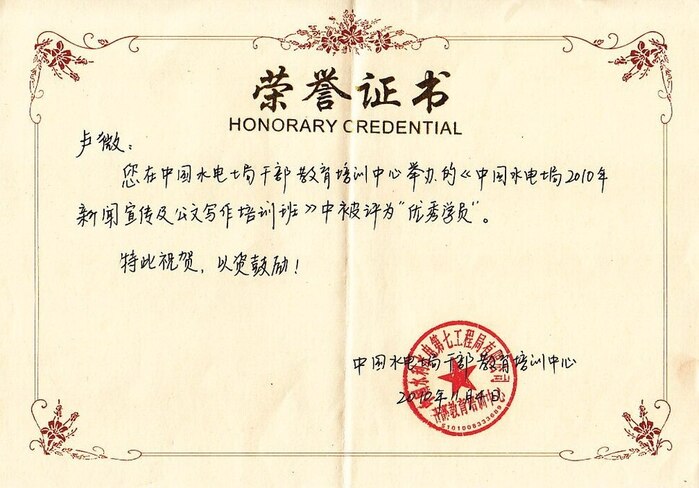 荣誉证书
HONORARY CREDENTIAL
卢微：
您在中国水电七局干部教育培训中心举办的《中国水电七局2010年
新闻宣传及公文写作培训班》中被评为“优秀学员”。
特此祝贺，以资鼓励！
中国水电七局干部教育培训中心
2010年11月4日
中国水利水电第七工程局有限公司
干部教育培训中心